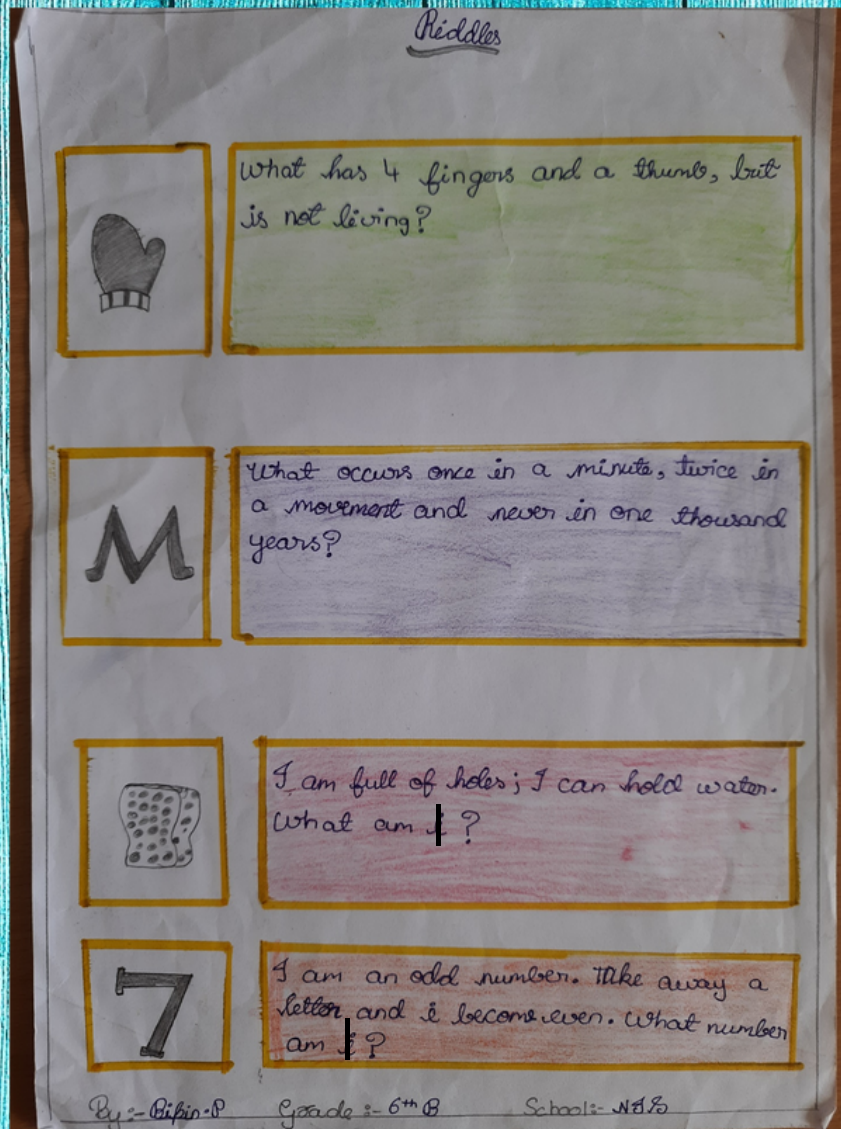 Riddles
What has 4 fingers and a thumb, but
is not living?
M
What occurs once in a minute, twice in
a movement and never in one thousand
years?
I am full of holes; I can hold water.
What am I ?
7
I am an odd number. Take away a
letter and i become even. What number
am I ?
By:- Bipin.P Grade :- 6th B School:-